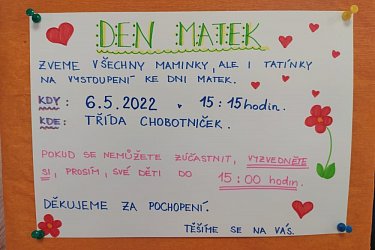 DEN MATEK
ZVEME VŠECHNY MAMINKY, ALE I TATÍNKY
NA VYSTOUPENÍ KE DNI MATEK.
KDY: 6.5.2022 v 15:15 hodin.
KDE: TŘÍDA CHOBOTNIČEK.
POKUD SE NEMŮŽETE ZÚČASTNIT, VYZVEDNĚTE
SI, PROSÍM, SVÉ DĚTI DO 15:00 hodin.
DĚKUJEME ZA POCHOPENÍ.
TĚŠÍME SE NA VÁS.